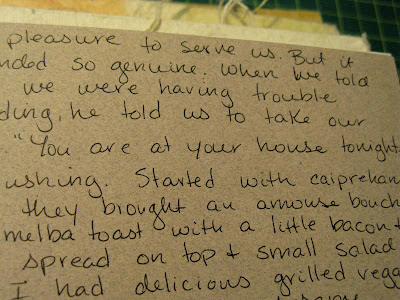 pleasure to serve us. But it
nded so genuine. When we told
we were having trouble
ding, he told us to take our
. "You are at your house tonight.
ushing. Started with caiprehan
they brought an amouse bouch
melba toast with a little bacon +
spread on top + small salad
I had delicious grilled vega